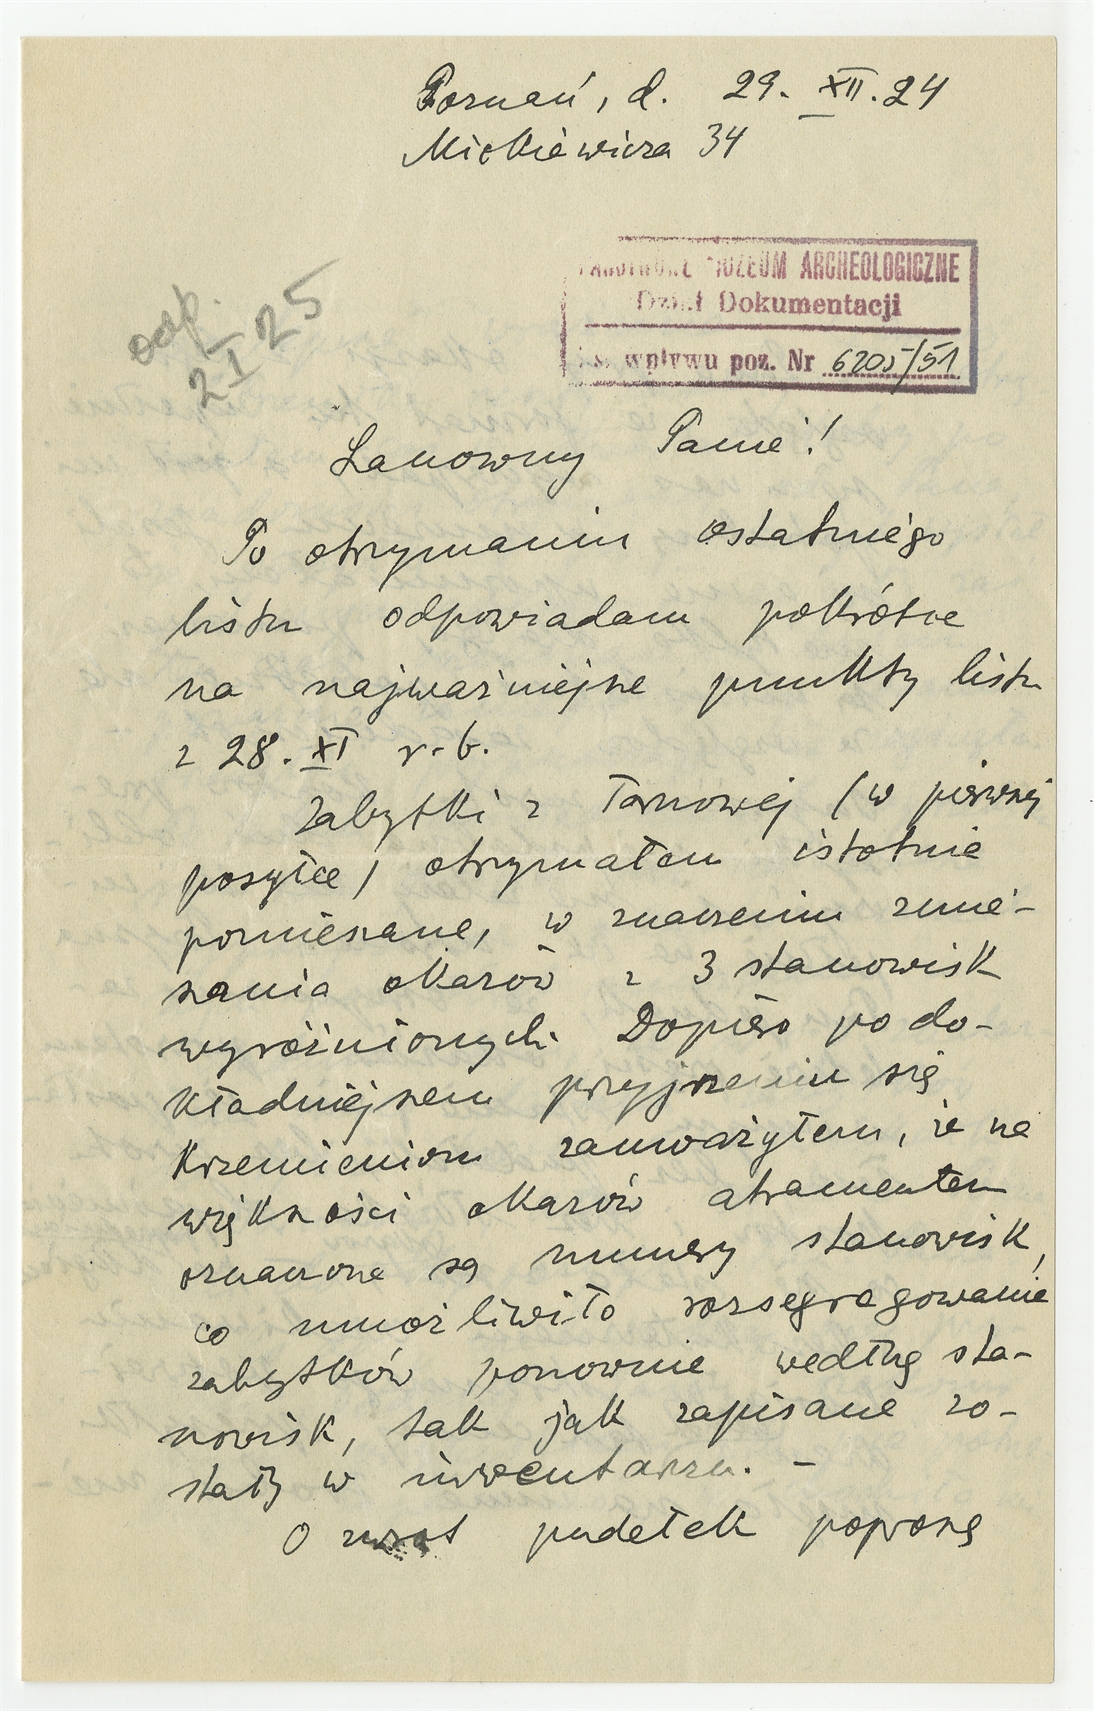 Poznań, d. 29. XII. 24
Mickiewicza 34
PAŃSTWOWE MUZEUM ARCHEOLOGICZNE
Dział Dokumentacji
Ks. wpływu poz. Nr 6205/51
odp.
2 I 25
Szanowny Panie!
Po otrzymaniu ostatniego
listu odpowiadam pokrótce
na najważniejsze punkty listu
z 28. XI r. b.
Zabytki z Tarnowej (w pierwszej
posyłce) otrzymałem istotnie
pomieszane, w znaczeniu zmie-
szania okazów z 3 stanowisk
wyróżnionych. Dopiero po do-
kładniejszem przyjrzeniu się
krzemieniom zauważyłem, że na
większości okazów atramentem
oznaczone są numery stanowisk,
co umożliwiło rozsegregowanie
zabytków ponownie według sta-
nowisk, tak jak zapisane zo-
stały w inwentarzu. –
O zwrot pudełek poproszę